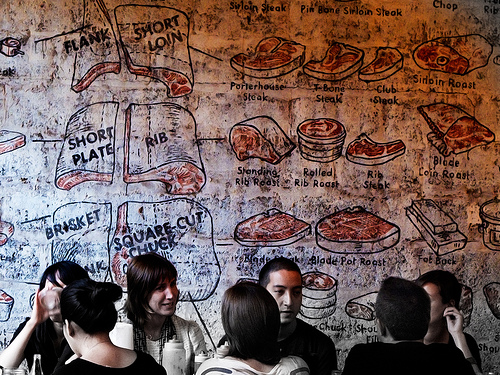 Sirloin Steak
Pin Bone Sirloin Steak
Chop
FLANK
SHORT
LOIN
Porterhouse
Steak
T-Bone
Steak
Club
Steak
Sirloin Roast
SHORT
PLATE
RIB
Standing
Rib Roast
Rolled
Rib Roast
Rib
Steak
Blade
Loin Roast
BRISKET
SQUARE CUT
CHUCK
Blade Pot Roast
Fat Back
Chuck